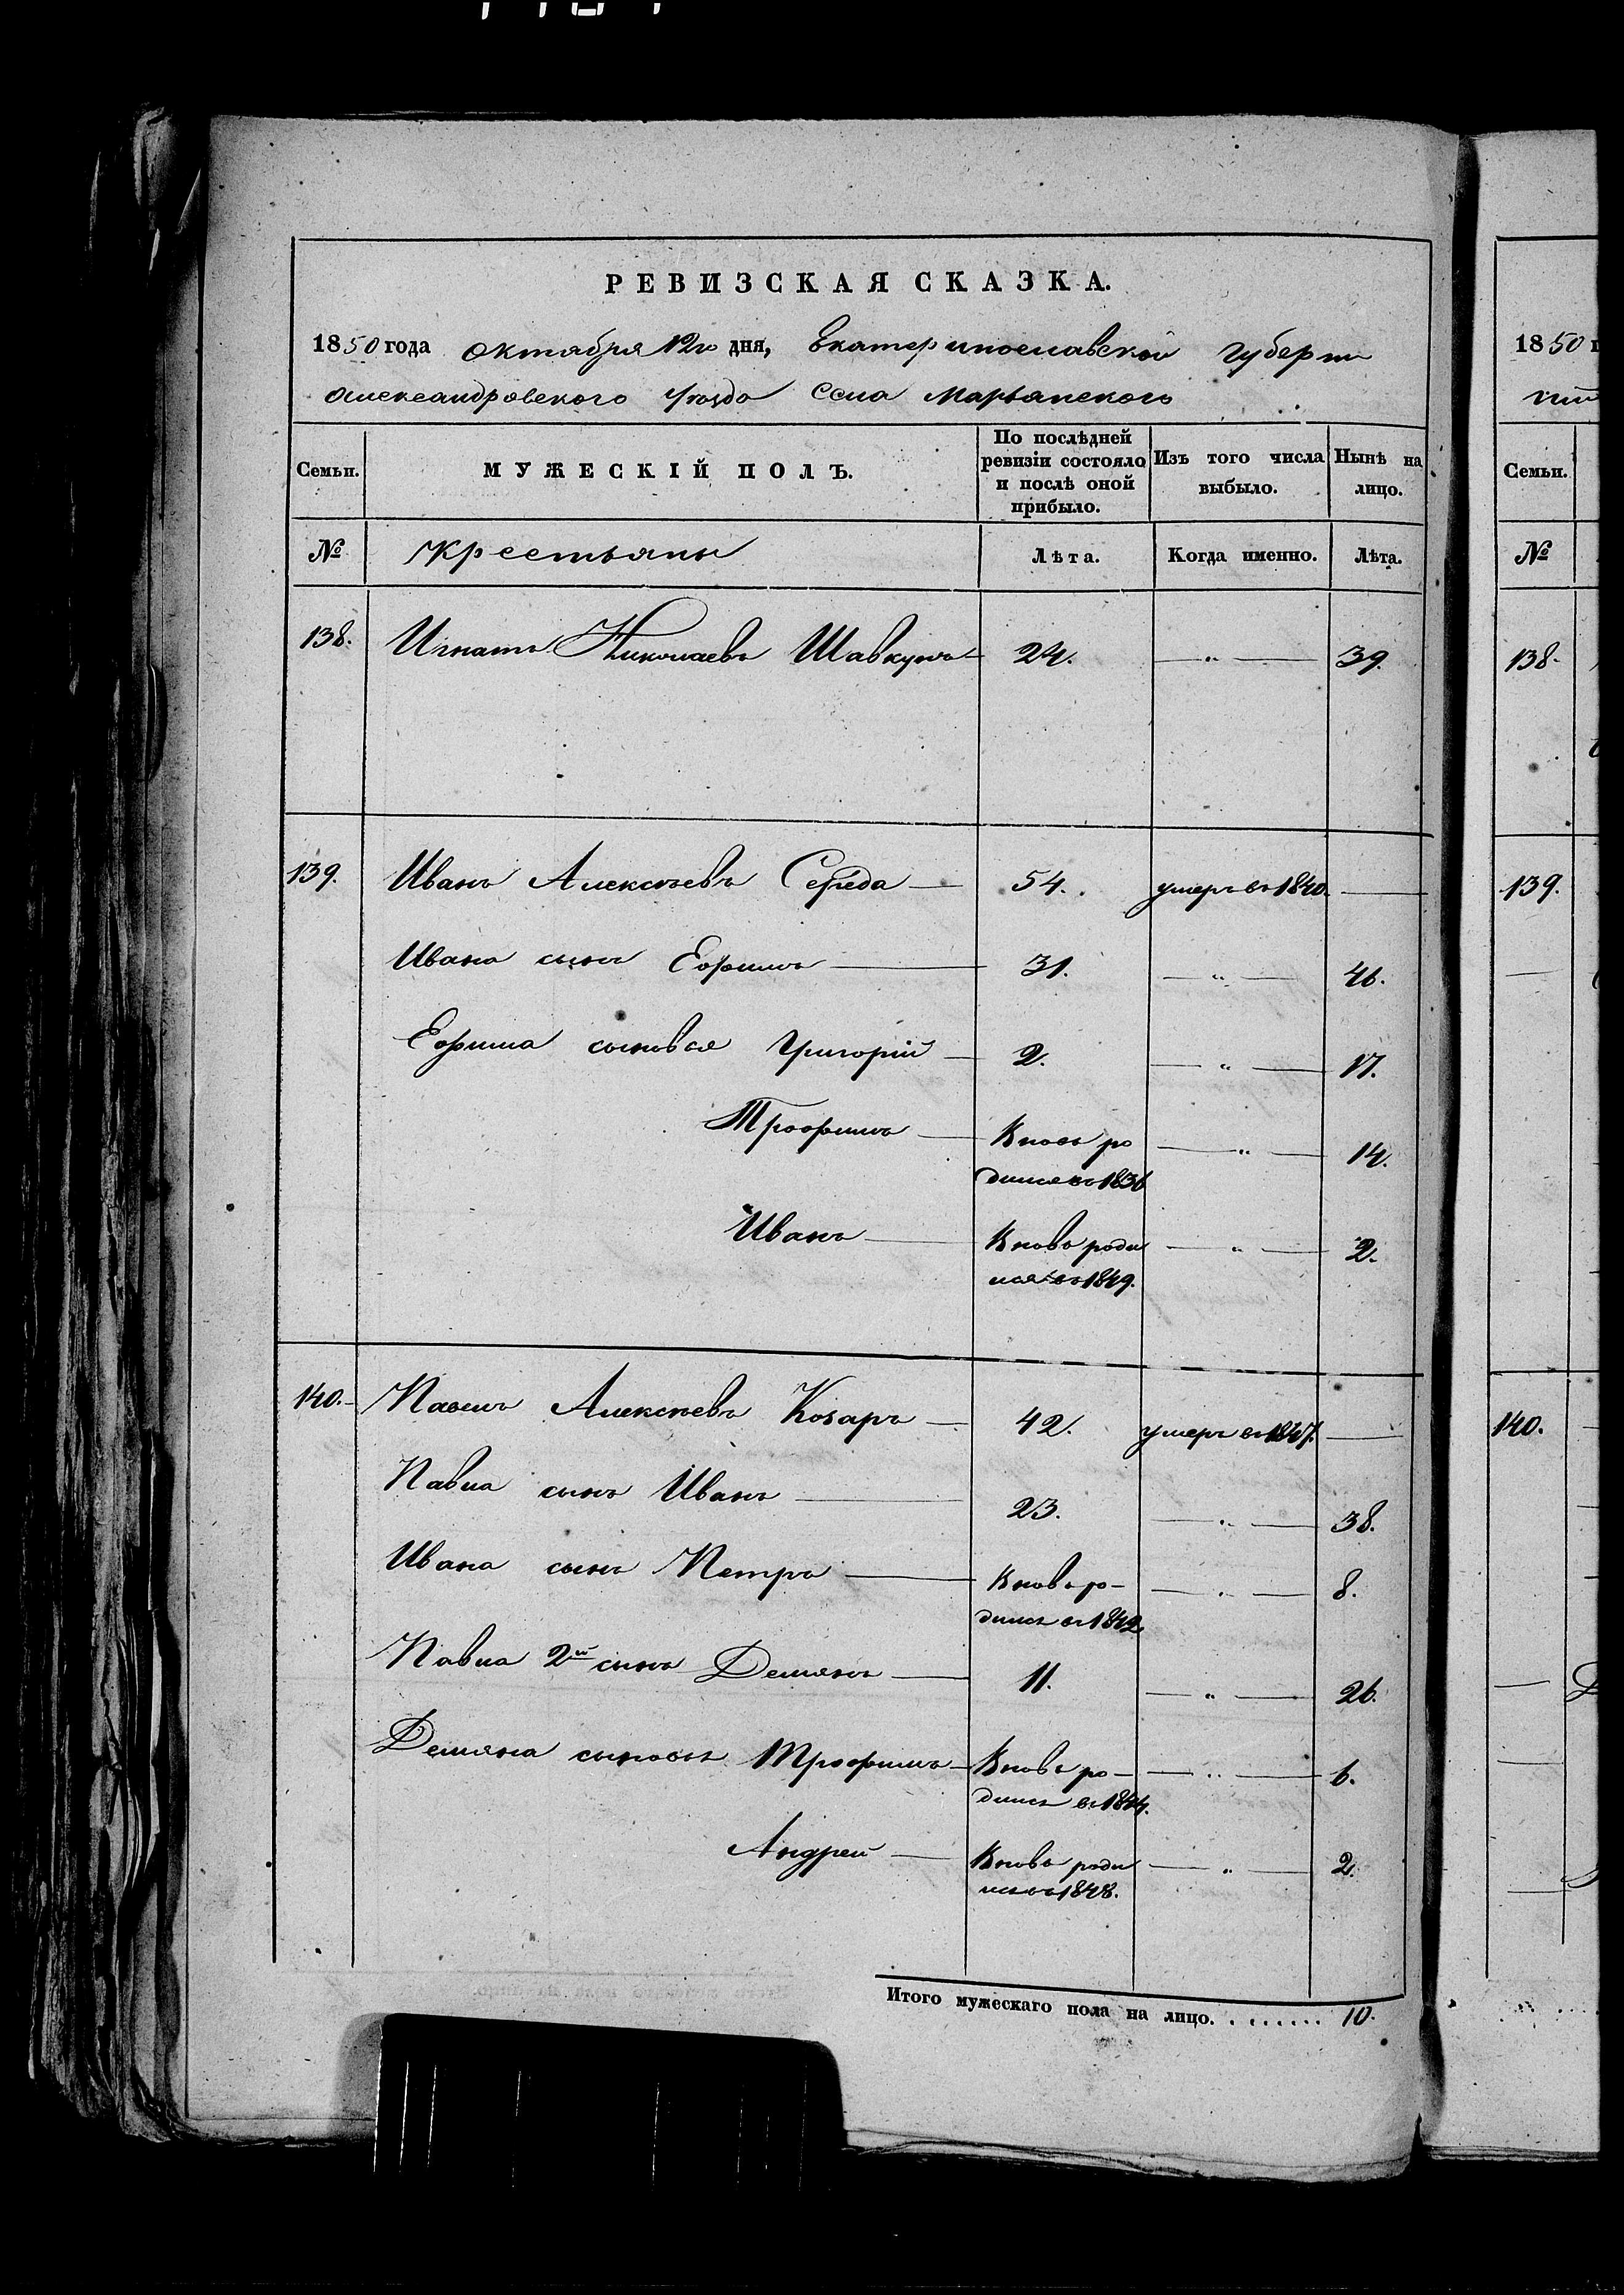 РЕВИЗСКАЯ СКАЗКА.
1850 года октября 12го дня, Екатеринославской Губерни
Александровского Уезда Села Марьянского
Семьи. МУЖЕСКІЙ ПОЛЪ. По послѣдней ревизіи состояло и послѣ оной прибыло. Изъ того числа выбыло. Нынѣ на лицо.
№ Крестьяны Лѣта. Когда именно. Лѣта.
138. Игнатъ Николаевъ Шавкунъ 24. — " — 39.
139. Иванъ Алексѣевъ Середа 54. умеръ въ 1840. —
Ивана сынъ Ефимъ 31. — " — 46.
Ефима сыновья Григорій 2. — " — 17.
Трофимъ Вновь ро — " — 14.
дился въ 1836
Иванъ Вновь роди — " — 2.
лся въ 1849.
140. Павелъ Алексѣевъ Козаръ 42. умеръ въ 1847. —
Павла сынъ Иванъ 23. — " — 38.
Ивана сынъ Петръ Вновь ро- — " — 8.
дился въ 1842
Павла 2й сынъ Демянъ 11. — " — 26.
Демяна сыновья Трофимъ Вновь ро- — " — 6.
дился въ 1844.
Андрей Вновь роди — " — 2.
лся въ 1848.
Итого мужескаго пола на лицо. . . . . . . . 10.
1850
Семьи.
№
138.
139.
140.